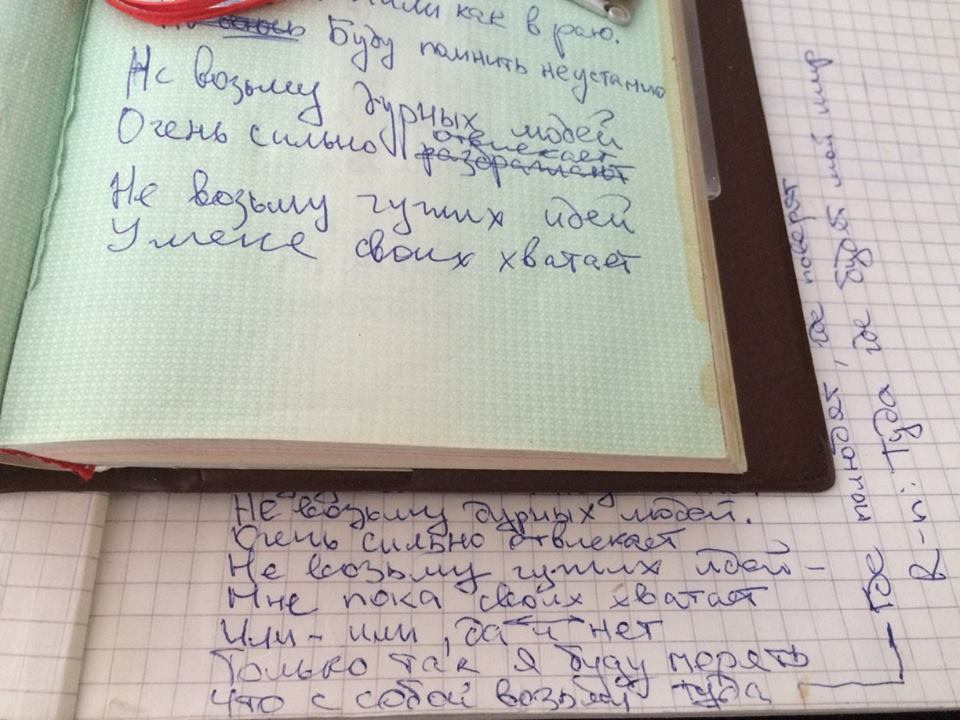 как в раю.
Буду помнить неустанно
Не возьму дурных людей
Очень сильно отвлекает
раздражают
Не возьму чужих идей
У меня своих хватает
Не возьму дурных людей.
Очень сильно отвлекает
Не возьму чужих идей –
Мне пока своих хватает
Или – или, да и нет
Только так я буду мерять
Что с собой возьму туда
Где полюбят, где поверят
В-н: Туда где будет мой мир